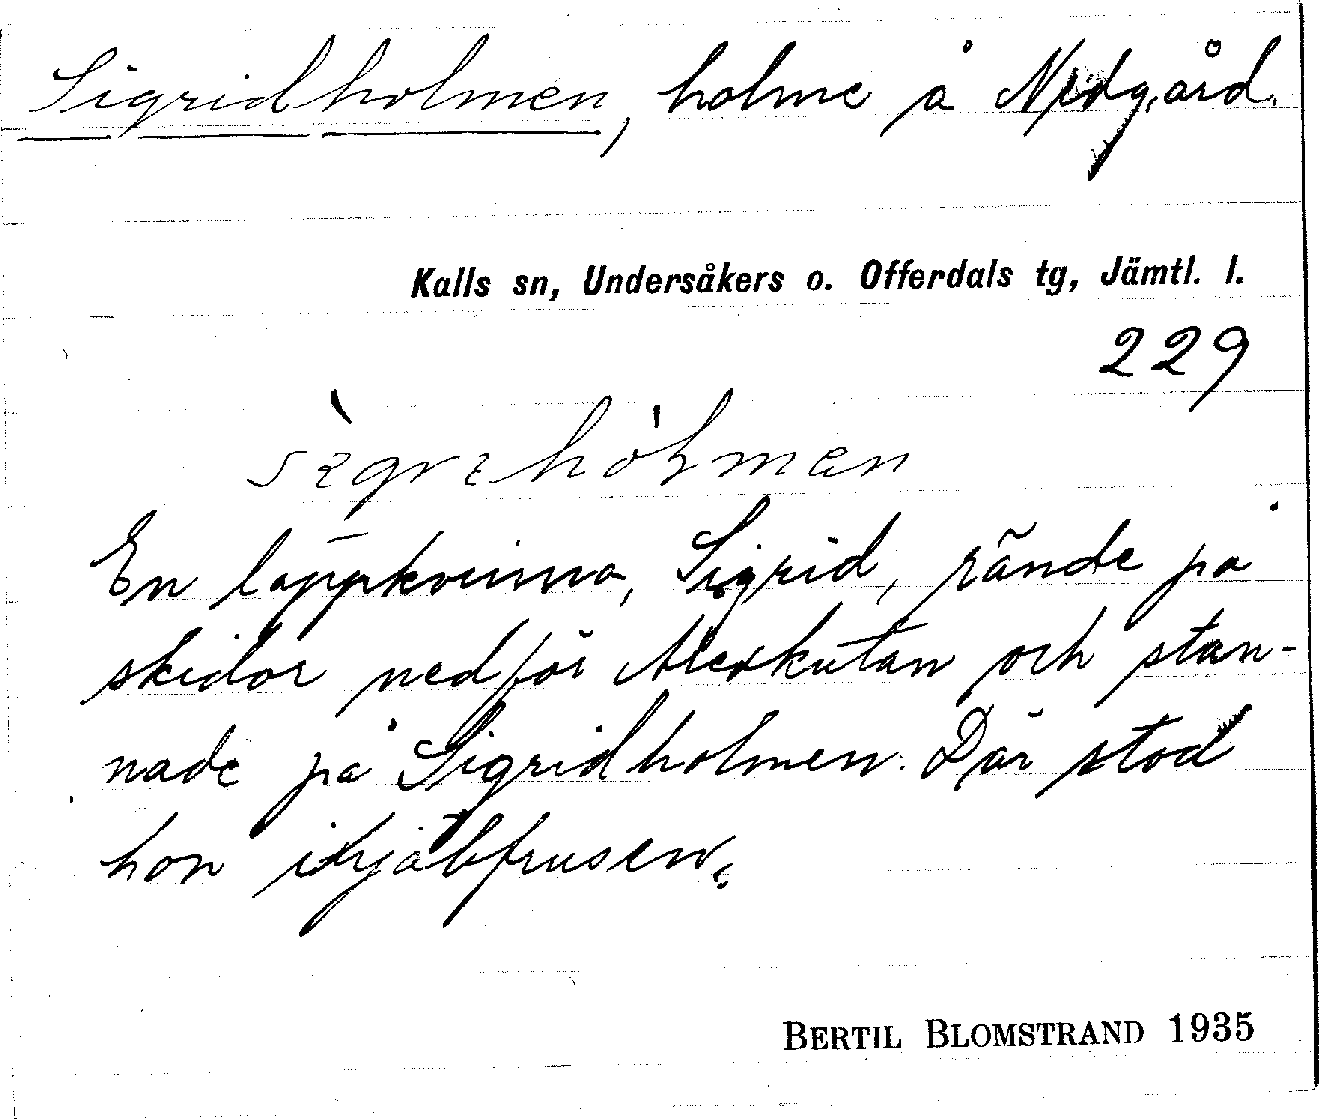 Sigridholmen, holme å Nedgård.
Kalls sn, Undersåkers o. Offerdals tg, Jämtl. l.
229
En lappkvinna, Sigrid, rände på
skidor nedför Åreskutan och stan-
nade på Sigridholmen. Där stod
hon ihjälfrusen.
BERTIL BLOMSTRAND 1935